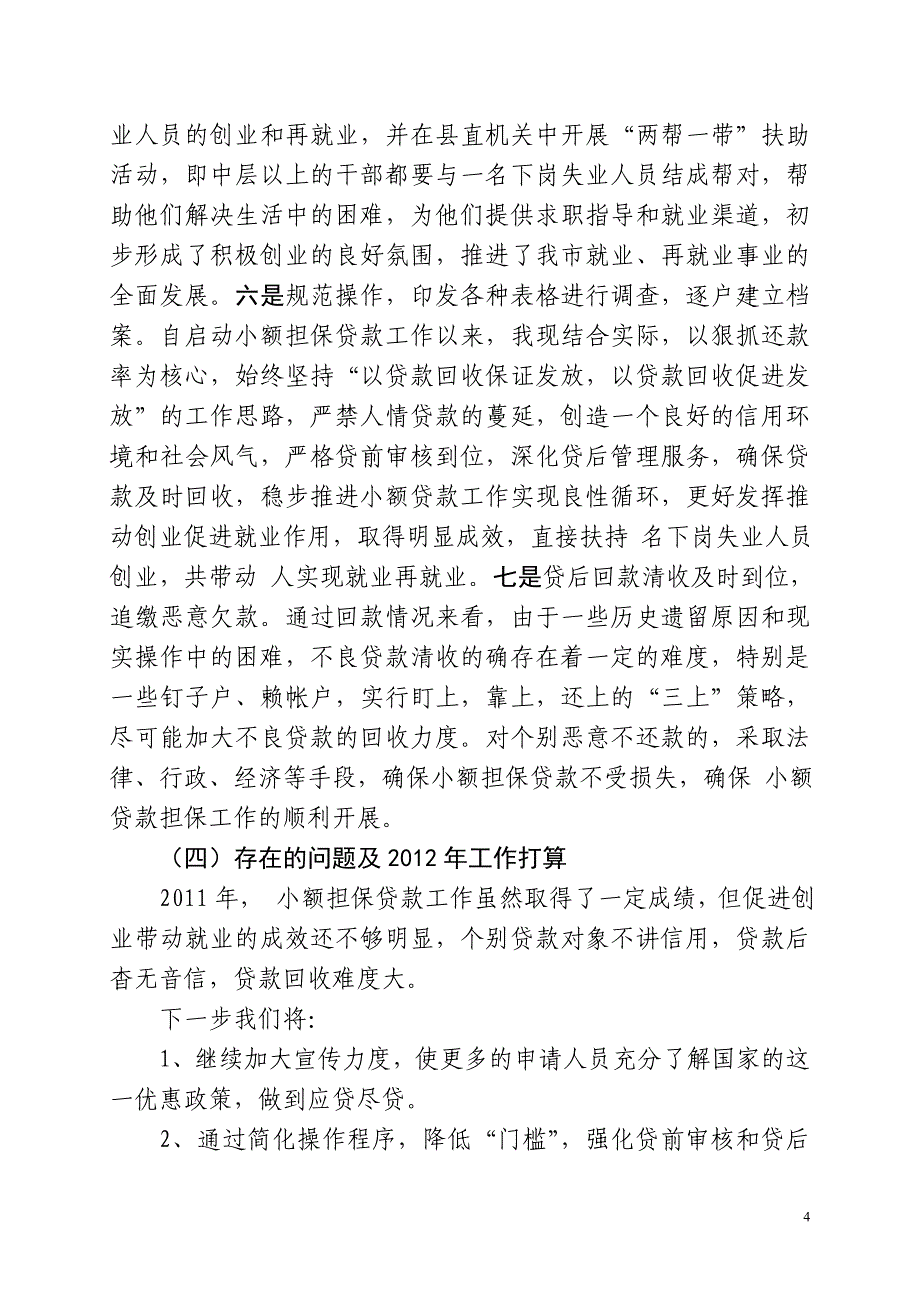 业人员的创业和再就业，并在县直机关中开展“两帮一带”扶助
活动，即中层以上的干部都要与一名下岗失业人员结成帮对，帮
助他们解决生活中的困难，为他们提供求职指导和就业渠道，初
步形成了积极创业的良好氛围，推进了我市就业、再就业事业的
全面发展。六是规范操作，印发各种表格进行调查，逐户建立档
案。自启动小额担保贷款工作以来，我现结合实际，以狠抓还款
率为核心，始终坚持“以贷款回收保证发放，以贷款回收促进发
放”的工作思路，严禁人情贷款的蔓延，创造一个良好的信用环
境和社会风气，严格贷前审核到位，深化贷后管理服务，确保贷
款及时回收，稳步推进小额贷款工作实现良性循环，更好发挥推
动创业促进就业作用，取得明显成效，直接扶持 名下岗失业人员
创业，共带动 人实现就业再就业。七是贷后回款清收及时到位，
追缴恶意欠款。通过回款情况来看，由于一些历史遗留原因和现
实操作中的困难，不良贷款清收的确存在着一定的难度，特别是
一些钉子户、赖帐户，实行盯上，靠上，还上的“三上”策略，
尽可能加大不良贷款的回收力度。对个别恶意不还款的，采取法
律、行政、经济等手段，确保小额担保贷款不受损失，确保 小额
贷款担保工作的顺利开展。
（四）存在的问题及 2012 年工作打算
2011 年， 小额担保贷款工作虽然取得了一定成绩，但促进创
业带动就业的成效还不够明显，个别贷款对象不讲信用，贷款后
杳无音信，贷款回收难度大。
下一步我们将：
1、继续加大宣传力度，使更多的申请人员充分了解国家的这
一优惠政策，做到应贷尽贷。
2、通过简化操作程序，降低“门槛”，强化贷前审核和贷后
4